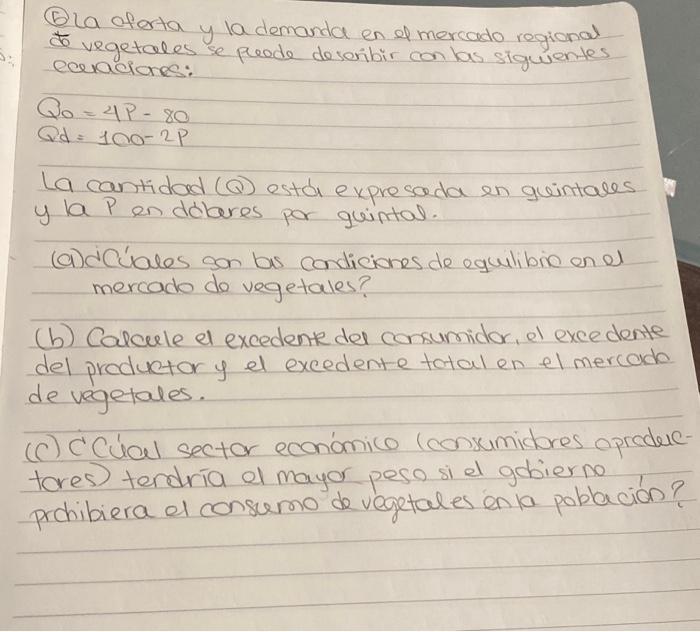 ⑤ La oferta y la demanda en el mercado regional
de vegetales se puede describir con las siguientes
ecuaciones:
Qo = 4P - 80
Qd = 100 - 2P
La cantidad (Q) está expresada en quintales
y la P en dólares por quintal.
(a) ¿Cúales son las condiciones de equilibrio en el
mercado de vegetales?
(b) Calcule el excedente del consumidor, el excedente
del productor y el excedente total en el mercado
de vegetales.
(c) ¿Cúal sector económico (consumidores o produc-
tores) tendría el mayor peso si el gobierno
prohibiera el consumo de vegetales en la población?